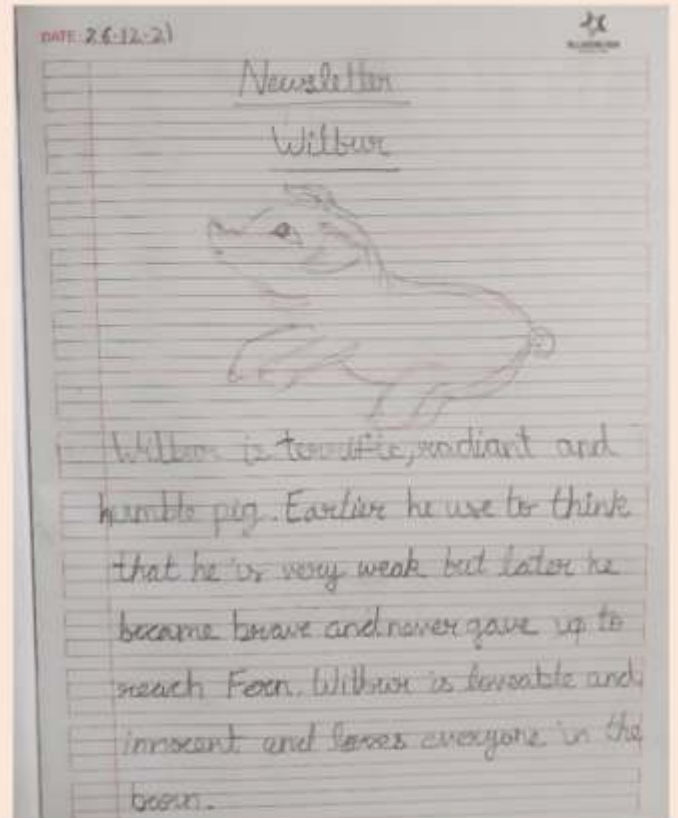 DATE: 26-12-21
Newsletter
Wilbur
Wilbur is terrific, radiant and
humble pig. Earlier he use to think
that he is very weak but later he
became brave and never gave up to
reach Fern. Wilbur is loveable and
innocent and loves everyone in the
barn.